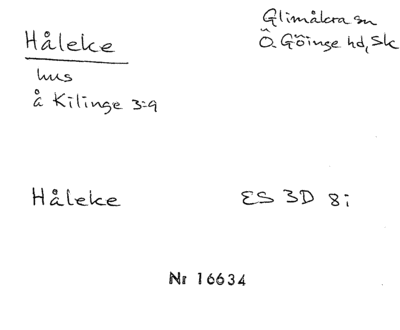 Håleke
Glimåkra sn
Ö. Göinge hd, Sk
hus
å Kilinge 3:9
Håleke
ES 3D 8i
Nr 16634